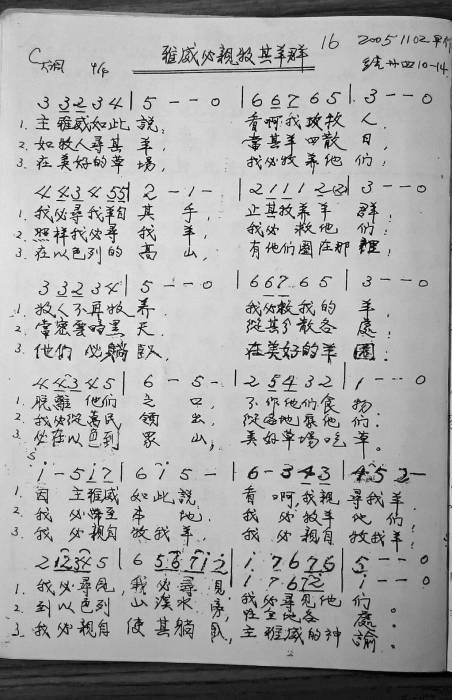 16 2005 11 02
C大调 4/4 雅威必亲牧其羊群 34 10-14
3 3 2 3 4 | 5 - - 0 | 6 6 7 6 5 | 3 - - 0
1. 主雅威如此说: 看啊我攻牧人.
2. 如牧人寻其羊, 当其羊四散日,
3. 在美好的草场, 我必牧养他们;
4 4 3 4 5 5 | 2 - 1 - | 2 1 1 1 2 | 3 - - 0
1. 我必寻我羊自其手, 止其牧养羊群;
2. 照样我必寻找羊, 我必救他们;
3. 在以色列的高山, 有他们圈在那里;
3 3 2 3 4 | 5 - - 0 | 6 6 7 6 5 | 3 - - 0
1. 牧人不再牧养. 我必救我的羊,
2. 当密云时黑天. 从其分散各处;
3. 他们必躺卧. 在美好的羊圈;
4 4 3 4 5 | 6 - 5 - | 2 5 4 3 2 | 1 - - 0
1. 脱离他们之口, 不作他们食物.
2. 我必从万民领出, 从各地聚他们;
3. 必在以色列众山, 美好草场吃草.
i - 5 i 7 | 6 i 5 - | 6 - 3 4 3 | 4 5 2 -
1. 因主雅威如此说: 看啊,我亲寻我羊.
2. 我必归至本地. 我必牧羊他们;
3. 我必亲自牧我羊. 我必亲自牧我羊;
2 1 2 3 4 5 | 6 5 6 7 i 2 | i 7 6 7 6 | 5 - - 0
i 7 6 7 2 | i - - 0
1. 我必寻见,我必寻见, 我必寻见他们.
2. 到以色列山溪水旁,
3. 我必亲自使其躺卧, 主雅威的神谕.